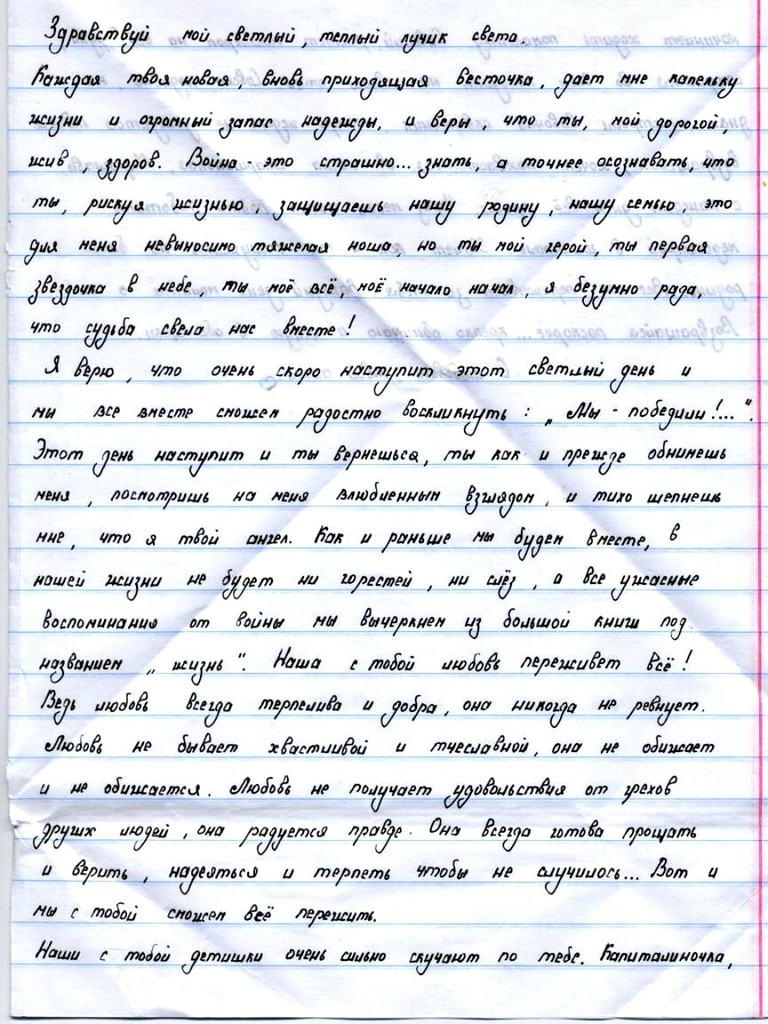 Здравствуй мой светлый, теплый лучик света.
Каждая твоя новая, вновь приходящая весточка, дает мне капельку
жизни и огромный запас надежды, и веры, что ты, мой дорогой,
жив, здоров. Война - это страшно... знать, а точнее осознавать, что
ты, рискуя жизнью, защищаешь нашу родину, нашу семью, это
для меня невыносимо тяжелая ноша, но ты мой герой, ты первая
звездочка в небе, ты моё всё, моё начало начал, я безумно рада,
что судьба свела нас вместе!
Я верю, что очень скоро наступит этот светлый день и
мы все вместе сможем радостно воскликнуть : „Мы - победили!...“.
Этот день наступит и ты вернешься, ты как и прежде обнимешь
меня, посмотришь на меня влюбленным взглядом, и тихо шепнешь
мне, что я твой ангел. Как и раньше мы будем вместе, в
нашей жизни не будет ни горестей, ни слёз, а все ужасные
воспоминания от войны мы вычеркнем из большой книги под
названием „жизнь“. Наша с тобой любовь переживет всё!
Ведь любовь всегда терпелива и добра, она никогда не ревнует.
Любовь не бывает хвастливой и тчеславной, она не обижает
и не обижается. Любовь не получает удовольствия от грехов
других людей, она радуется правде. Она всегда готова прощать
и верить, надеяться и терпеть чтобы не случилось... Вот и
мы с тобой сможем всё пережить.
Наши с тобой детишки очень сильно скучают по тебе. Капиталиночка,